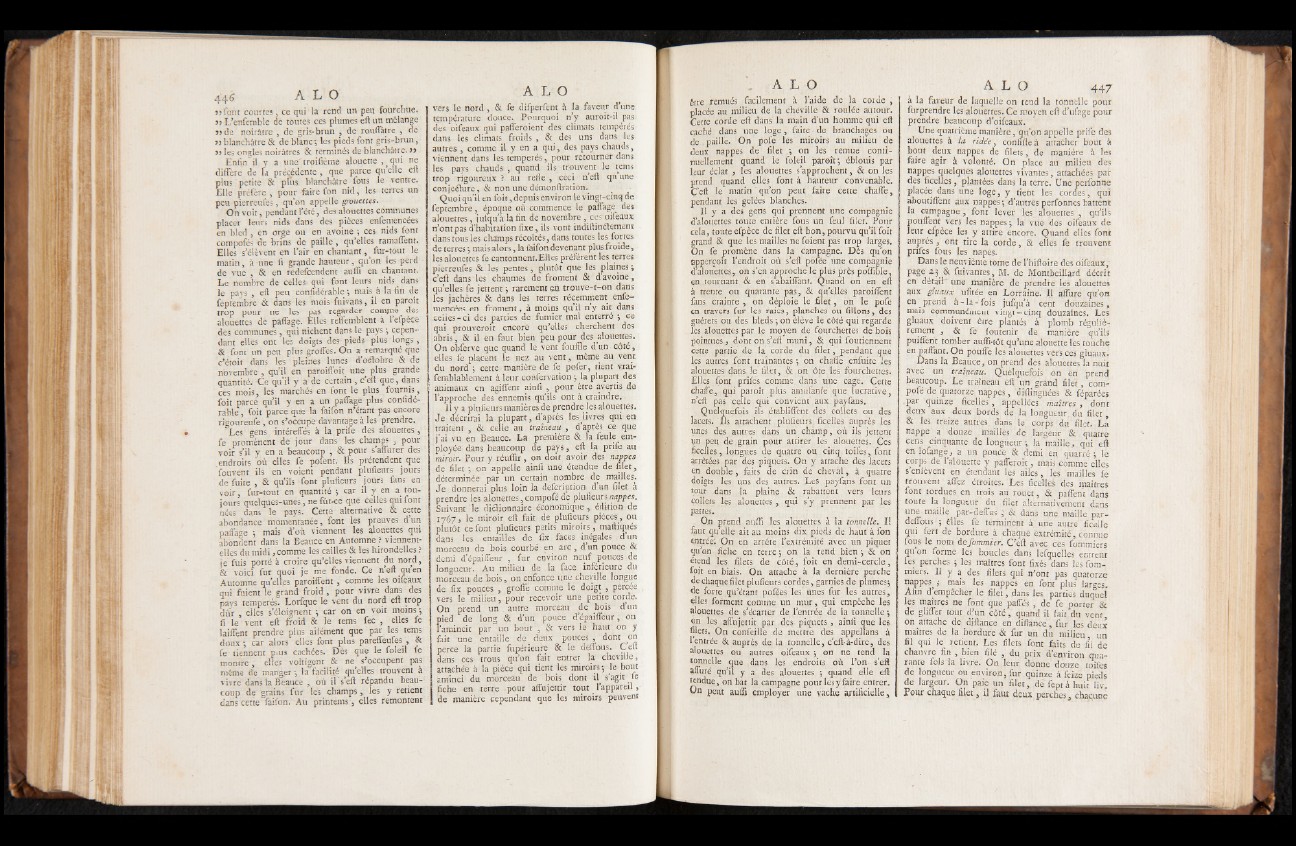 446 A L O
» sont courtes, ce qui la rend un peu fourchue.
» L'ensemble de toutes ces plumes est un mélange
» de noirâtre, de gris-brun, de roussâtre, de
» blanchâtre & de blanc; les pieds sont gris-brun,
» les ongles noirâtres & terminés de blanchâtre. »
Enfin il y a une troisième alouette, qui ne
diffère de la précédente, que parce qu'elle est
plus petite & plus blanchâtre sous le ventre.
Elle préfère, pour faire son nid, les terres un
peu pierreuses, qu'on appelle grouettes.
On voit, pendant l'été, des alouettes communes
placer leurs nids dans des pièces ensemencées
en bled, en orge ou en avoine; ces nids sont
composés de brins de paille, qu'elles ramassent.
Elles s'élèvent en l'air en chantant, sur-tout le
matin, à une si grande hauteur, qu'on les perd
de vue, & en redescendent aussi en chantant.
Le nombre de celles qui font leurs nids dans
le pays, est peu considérable; mais à la fin de
septembre & dans les mois suivans, il en paroît
trop pour ne les pas regarder comme des
alouettes de passage. Elles ressemblent à l'espèce
des communes, qui nichent dans le pays; cepen-
dant elles ont les doigts des pieds plus longs,
& sont un peu plus grosses. On a remarqué que
c'étoit dans les pleines lunes d'octobre & de
novembre, qu'il en paroissoit une plus grande
quantité. Ce qu'il y a de certain, c'est que, dans
ces mois, les marchés en sont le plus fournis,
soit parce qu'il y en a un passage plus considé-
rable, soit parce que la saison n'étant pas encore
rigoureuse, on s'occupe davantage à les prendre.
Les gens intéressés à la prise des alouettes,
se promènent de jour dans les champs, pour
voir s'il y en a beaucoup, & pour s'assurer des
endroits où elles se posent. Ils prétendent que
souvent ils en voient pendant plusieurs jours
de suite, & qu'ils sont plusieurs jours sans en
voir, sur-tout en quantité; car il y en a tou-
jours quelques-unes, ne fût-ce que celles qui sont
nées dans le pays. Cette alternative & cette
abondance momentanée, sont les preuves d'un
passage; mais d'où viennent les alouettes qui
abondent dans la Beauce en Automne? viennent-
elles du midi, comme les cailles & les hirondelles?
je suis porté à croire qu'elles viennent du nord,
& voici sur quoi je me fonde. Ce n'est qu'en
Automne qu'elles paroissent, comme les oiseaux
qui fuient le grand froid, pour vivre dans des
pays tempérés. Lorsque le vent du nord est trop
dûr, elles s'éloignent; car on en voit moins;
si le vent est froid & le tems sec, elles se
laissent prendre plus aisément que par les tems
doux; car alors elles sont plus paresseuses, &
se tiennent plus cachées. Dès que le soleil se
montre, elles voltigent & ne s'occupent pas
même de manger; la facilité qu'elles trouvent à
vivre dans la Beauce, où il s'est répandu beau-
coup de grains sur les champs, les y retient
dans cette saison. Au printems, elles remontent
A L O
vers le nord, & se dispersent à la faveur d'une
température douce. Pourquoi n'y auroit-il pas
des oiseaux qui passeroient des climats tempérés
dans les climats froids, & des uns dans les
autres, comme il y en a qui, des pays chauds,
viennent dans les temperés, pour retourner dans
les pays chauds, quand ils trouvent le tems
trop rigoureux? au reste, ceci n'est qu'une
conjecture, & non une démonstration.
Quoi qu'il en soit, depuis environ le vingt-cinq de
septembre, époque où commence le passage des
alouettes, jusqu'à la fin de novembre, ces oiseaux
n'ont pas d'habitation fixe, ils vont indistinctement
dans tous les champs récoltés, dans toutes les sortes
de terres; mais alors, la saison devenant plus froide,
les alouettes se cantonnent. Elles préfèrent les terres
pierreuses & les pentes, plutôt que les plaines;
c'est dans les chaumes de froment & d'avoine,
qu'elles se jettent; rarement en trouve-t-on dans
les jachères & dans les terres récemment ense-
mencées en froment, à moins qu'il n'y ait dans
celles-ci des parties de fumier mal enterré; ce
qui prouveroit encore qu'elles cherchent des
abris, & il en faut bien peu pour des alouettes.
On observe que quand le vent souffle d'un côté,
elles se placent le nez au vent, même au vent
du nord; cette manière de se poser, tient vrai-
semblablement à leur conservation; la plupart des
animaux en agissent ainsi, pour être avertis de
l'approche des ennemis qu'ils ont à craindre.
Il y a plusieurs manières de prendre les alouettes.
Je décrirai la plupart, d'après les livres qui en
traitent, & celle au traineau, d'après ce que
j'ai vu en Beauce. La première & la seule em-
ployée dans beaucoup de pays, est la prise au
miroir. Pour y réussir, on doit avoir des nappes
de filet; on appelle ainsi une étendue de filet,
déterminée par un certain nombre de mailles.
Je donnerai plus loin la description d'un filet à
prendre les alouettes, composé de plusieurs nappes.
Suivant le dictionnaire économique, édition de
1767, le miroir est fait de plusieurs pièces, ou
plutôt ce sont plusieurs petits miroirs, mastiqués
dans les entailles de six faces inégales d'un
morceau de bois courbé en arc, d'un pouce &
demi d'épaisseur, sur environ neuf pouces de
longueur. Au milieu de la face inférieure du
morceau de bois, on enfonce une cheville longue
de six pouces, grosse comme le doigt, percée
vers le milieu, pour recevoir une petite corde.
On prend un autre morceau de bois d'un
pied de long & d'un pouce d'épaisseur, on
l'amincit par un bout, & vers le haut on y
fait une entaille de deux pouces, dont on
perce la partie supérieure & le dessous. C'est
dans ces trous qu'on fait entrer la cheville,
attachée à la pièce qui tient les miroirs; le bout
aminci du morceau de bois dont il s'agit se
fiche en terre pour assujettir tout l'appareil,
de manière cependant que les miroirs peuvent
A L O
être remués facilement à l'aide de la corde,
placée au milieu de la cheville & roulée autour.
Cette corde est dans la main d'un homme qui est
caché dans une loge, faite de branchages ou
de paille. On pose les miroirs au milieu de
deux nappes de filet; on les remue conti-
nuellement quand le soleil paroît; éblouis par
leur éclat, les alouettes s'approchent, & on les
prend quand elles sont à hauteur convenable.
C'est le matin qu'on peut faire cette chasse,
pendant les gelées blanches.
Il y a des gens qui prennent une compagnie
d'alouettes toute entière sous un seul filet. Pour
cela, toute espèce de filet est bon, pourvu qu'il soit
grand & que les mailles ne soient pas trop larges.
On se promène dans la campagne. Dès qu'on
apperçoit l'endroit où s'est posée une compagnie
d'alouettes, on s'en approche le plus près possible,
en tournant & en s'abaissant. Quand on en est
à trente ou quarante pas, & qu'elles paroissent
sans crainte, on déploie le filet, on le pose
en travers sur les raies, planches ou sillons, des
guérets ou des bleds; on élève le côté qui regarde
les alouettes par le moyen de fourchettes de bois
pointues, dont on s'est muni, & qui soutiennent
cette partie de la corde du filet, pendant que
les autres sont traînantes; on chasse ensuite les
alouettes dans le filet, & on ôte les fourchettes.
Elles sont prises comme dans une cage. Cette
chasse, qui paroît plus amusante que lucrative,
n'est pas celle qui convient aux paysans.
Quelquefois ils établissent des collets ou des
lacets. Ils attachent plusieurs ficelles auprès les
unes des autres dans un champ, où ils jettent
un peu de grain pour attirer les alouettes. Ces
ficelles, longues de quatre ou cinq toises, sont
arrêtées par des piquets. On y attache des lacets
en double, faits de crin de cheval, à quatre
doigts les uns des autres. Les paysans font un
tour dans la plaine & rabattent vers leurs
collets les alouettes, qui s'y prennent par les
pattes.
On prend aussi les alouettes à la tonnelle. Il
faut qu'elle ait au moins dix pieds de haut à son
entrée. On en arrête l'extrémité avec un piquet
qu'on fiche en terre; on la tend bien; & on
étend les filets de côté, soit en demi-cercle,
soit en biais. On attache à la dernière perche
de chaque filet plusieurs cordes, garnies de plumes;
de sorte qu'étant posées les unes sur les autres,
elles forment comme un mur, qui empêche les
alouettes de s'écarter de l'entrée de la tonnelle;
on les assujettit par des piquets, ainsi que les
filets. On conseille de mettre des appellans à
l'entrée & auprès de la tonnelle, c'est-à-dire, des
alouettes ou autres oiseaux; on ne tend la
tonnelle que dans les endroits où l'on s'est
assuré qu'il y a des alouettes; quand elle est
tendue, on bat la campagne pour les y faire entrer.
On peut aussi employer une vache artificielle,
A L O 447
à la faveur de laquelle on tend la tonnelle pour
surprendre les alouettes. Ce moyen est d'usage pour
prendre beaucoup d'oiseaux.
Une quatrième manière, qu'on appelle prise des
alouettes à la ridée, consiste à attacher bout à
bout deux nappes de filets, de manière à les
faire agir à volonté. On place au milieu des
nappes quelques alouettes vivantes, attachées par
des ficelles, plantées dans la terre. Une personne
placée dans une loge, y tient les cordes, qui
aboutissent aux nappes; d'autres personnes battent
la campagne, font lever les alouettes, qu'ils
poussent vers les nappes; la vue des oiseaux de
leur espèce les y attire encore. Quand elles sont
auprès, on tire la corde, & elles se trouvent
prises sous les napes.
Dans le neuvième tome de l'histoire des oiseaux,
page 23 & suivantes, M. de Montbeillard décrit
en détail une manière de prendre les alouettes
aux gluaux usitée en Lorraine. Il assure qu'on
en prend à-la-fois jusqu'à cent douzaines,
mais communément vingt-cinq douzaines. Les
gluaux doivent être plantés à plomb réguliè-
rement, & se soutenir de manière qu'ils
puissent tomber aussi-tôt qu'une alouette les touche
en passant. On pousse les alouettes vers ces gluaux.
Dans la Beauce, on prend des alouettes la nuit
avec un traîneau. Quelquefois on en prend
beaucoup. Le traîneau est un grand filet, com-
posé de quatorze nappes, distinguées & séparées
par quinze ficelles, appellées maîtres, dont
deux aux deux bords de la longueur du filet,
& les treize autres dans le corps du filet. La
nappe a douze mailles de largeur & quatre
cens cinquante de longueur; la maille, qui est
en losange, a un pouce & demi en quarré; le
corps de l'alouette y passeroit, mais comme elles
s'enlèvent en étendant les ailes, les mailles se
trouvent assez étroites. Les ficelles des maîtres
sont tordues en trois au rouet, & passent dans
toute la longueur du filet alternativement dans
une maille par-dessus, & dans une maille par-
dessous; elles se terminent à une autre ficelle
qui sert de bordure à chaque extrémité, connue
sous le nom de sommier. C'est avec ces sommiers
qu'on forme les boucles dans lesquelles entrent
les perches; les maîtres sont fixés dans les som-
miers. Il y a des filets qui n'ont pas quatorze
nappes, mais les nappes en sont plus larges.
Afin d'empêcher le filet, dans les parties duquel
les maîtres ne sont que passés, de se porter &
de glisser tout d'un côté, quand il fait du vent,
on attache de distance en distance, sur les deux
maîtres de la bordure & sur un du milieu, un
fil qui le retient. Les filets sont faits de fil de
chanvre fin, bien filé, du prix d'environ qua-
rante sols la livre. On leur donne douze toises
de longueur ou environ, sur quinze à seize pieds
de largeur. On paie un filet, de sept à huit liv.
Pour chaque filet, il faut deux perches, chacune